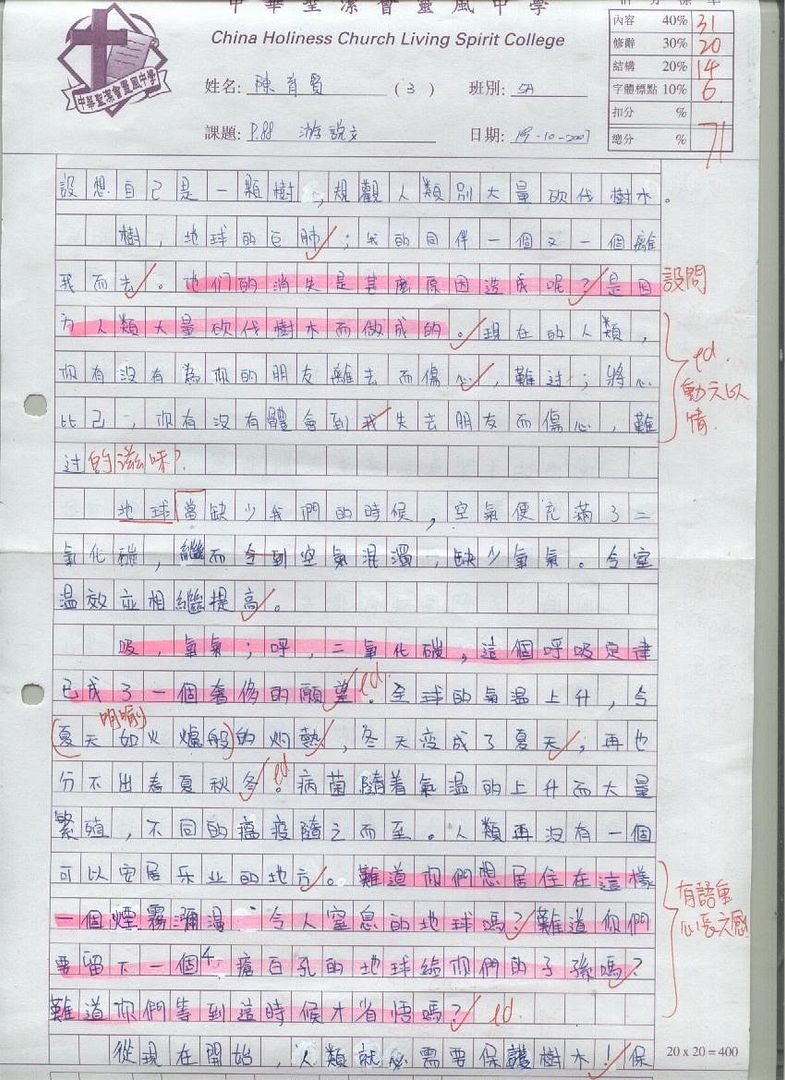 中華聖潔會靈風中學
China Holiness Church Living Spirit College
中華聖潔會靈風中學
內容 40% 31
修辭 30% 20
結構 20% 14
字體標點 10% 6
扣分 %
總分 % 71
姓名: 陳育賢 (3) 班別: 5A
課題: P.88 游說文 日期: 19-10-2007
設想自己是一顆樹,規觀人類別大量砍伐樹木。
樹,地球的巨肺;我的同伴一個又一個離
我而去。他们的消失是甚麼原因造成呢?是因
設問
为人類大量砍伐樹木而做成的。現在的人類,
你有沒有為你的朋友離去而傷心,難過;將心
比己,你有沒有體會到我失去朋友而傷心,難
過的滋味?
gd.
動之以
情
地球當缺少我們的時候,空氣便充滿了二
氧化碳,繼而令到空氣混濁,缺少氧氣。令室
温效应相繼提高。
吸,氧氣;呼,二氧化碳,這個呼吸定律
已成了一個奢侈的願望。全球的氣温上升,令
gd.
明喻
夏天如火爐般的灼熱,冬天变成了夏天,再也
分不出春夏秋冬。病菌隨着氣温的上升而大量
gd
繁殖,不同的瘟疫隨之而至。人類再沒有一個
可以安居乐业的地方。難道你們想居住在這樣
一個煙霧瀰漫、令人窒息的地球嗎?難道你們
要留下一個千瘡百孔的地球給你們的子孫嗎?
難道你們等到這時候才省悟嗎? gd.
有語重
心長之感
從現在開始,人類就必需要保護樹木!保
20 x 20 = 400